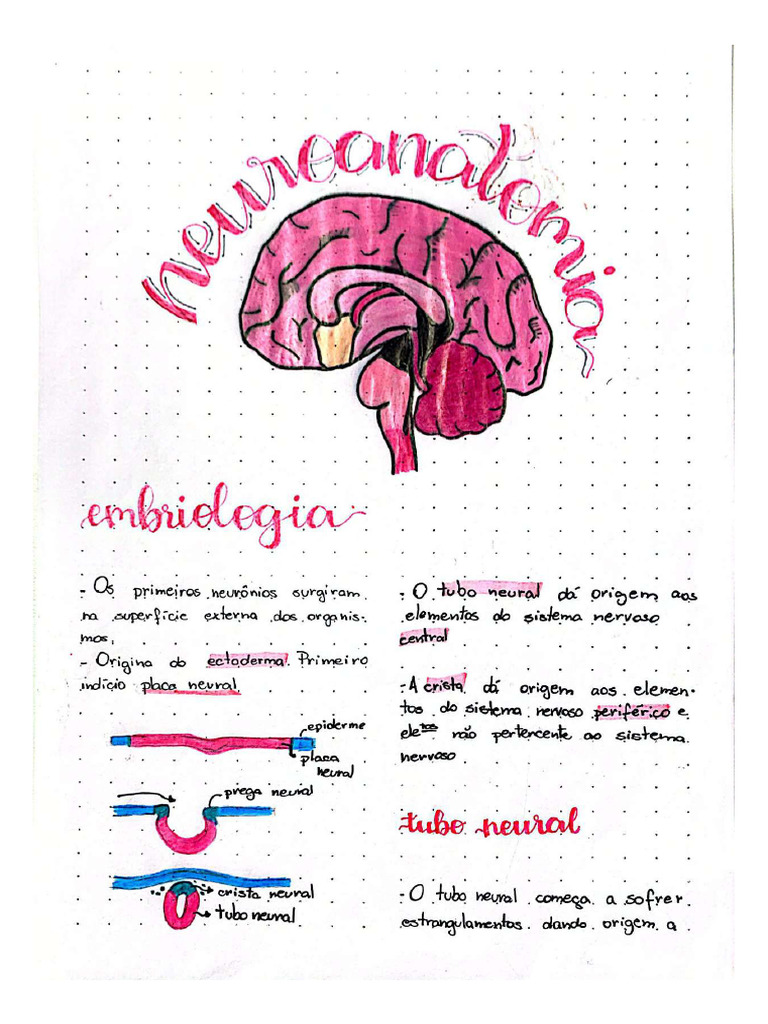 neuroanatomia
embriologia
- Os primeiros neurônios surgiram
na superfície externa dos organis-
mos.
- Origina do ectoderma. Primeiro
indício placa neural.
epiderme
placa
neural
prega neural
crista neural
tubo neural
- O tubo neural dá origem aos
elementos do sistema nervoso
central
- A crista dá origem aos elemen-
tos do sistema nervoso periférico e
eletos não pertencente ao sistema
nervoso
tubo neural
- O tubo neural começa a sofrer
estrangulamentos dando origem a